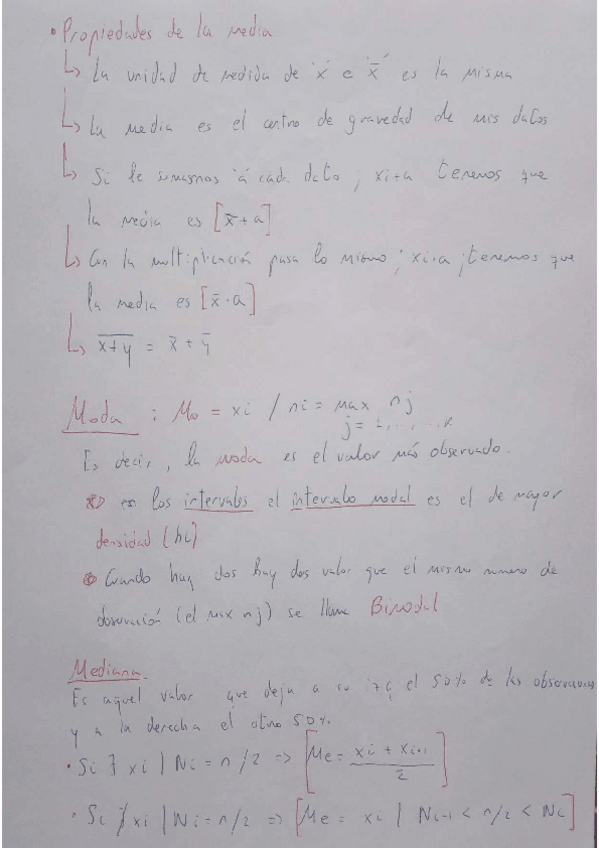 • Propiedades de la media
↳ La unidad de medida de 'x' e 'x̄' es la misma
↳ La media es el centro de gravedad de mis datos
↳ Si le sumamos 'a' cada dato, xi+a tenemos que
la media es [x̄+a]
↳ Con la multiplicación pasa lo mismo; xi·a; tenemos que
la media es [x̄·a]
↳ x+y̅ = x̄ + ȳ
Moda : Mo = xi / ni = max nj
j = 1, ..., k
Es decir, la moda es el valor más observado.
en los intervalos el intervalo modal es el de mayor
densidad (hi)
Cuando hay dos hay dos valor que el mismo numero de
observación (el max nj) se llama Bimodal
Mediana.
Es aquel valor que deja a su izq el 50% de las observaciones
y a la derecha el otro 50%.
• Si ∃ xi | Ni = n/2 => [Me = (xi + xi+1)/2]
• Si ∄ xi | Ni = n/2 => [Me = xi | Ni-1 < n/2 < Ni]